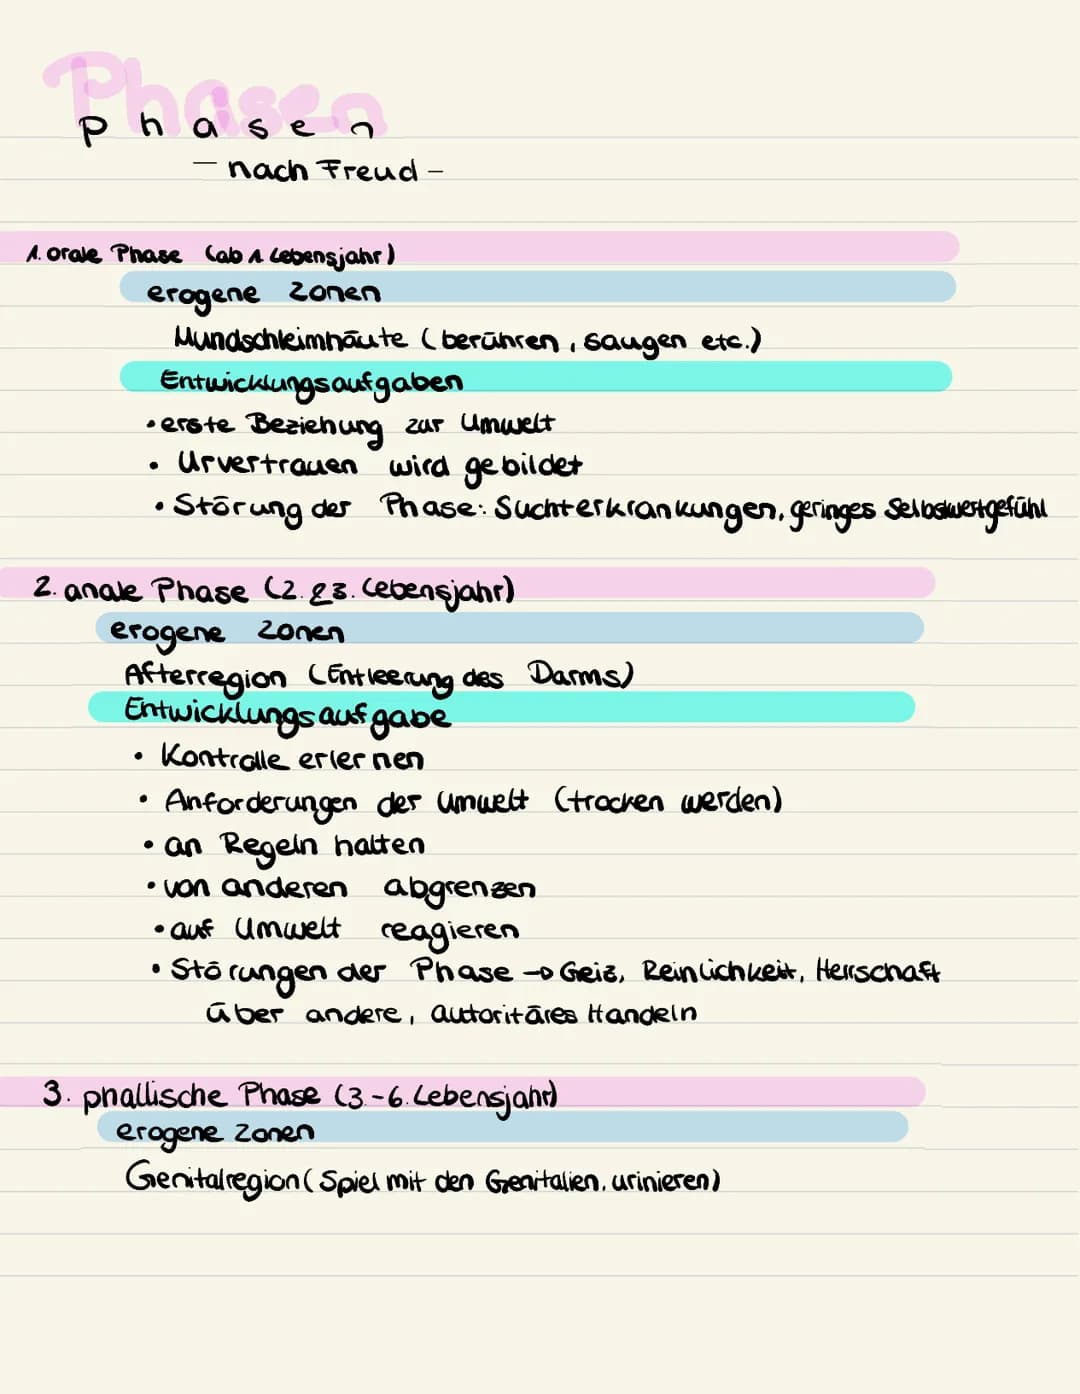 Phasen
Phasen
- nach Freud -
1. orale Phase (ab 1 Lebensjahr)
erogene Zonen
Mundschleimhäute (berühren, saugen etc.)
Entwicklungsaufgaben
• erste Beziehung zur Umwelt
• Urvertrauen wird gebildet
• Störung der Phase: Suchterkrankungen, geringes Selbswertgefühl
2. anale Phase (2. & 3. Lebensjahr)
erogene Zonen
Afterregion (Entleerung des Darms)
Entwicklungsaufgabe
• Kontrolle erlernen
• Anforderungen der Umwelt (trocken werden)
• an Regeln halten
• von anderen abgrenzen
• auf Umwelt reagieren
• Störungen der Phase → Geiz, Reinlichkeit, Herrschaft
über andere, autoritäres Handeln
3. phallische Phase (3.-6. Lebensjahr)
erogene Zonen
Genitalregion (Spiel mit den Genitalien, urinieren)